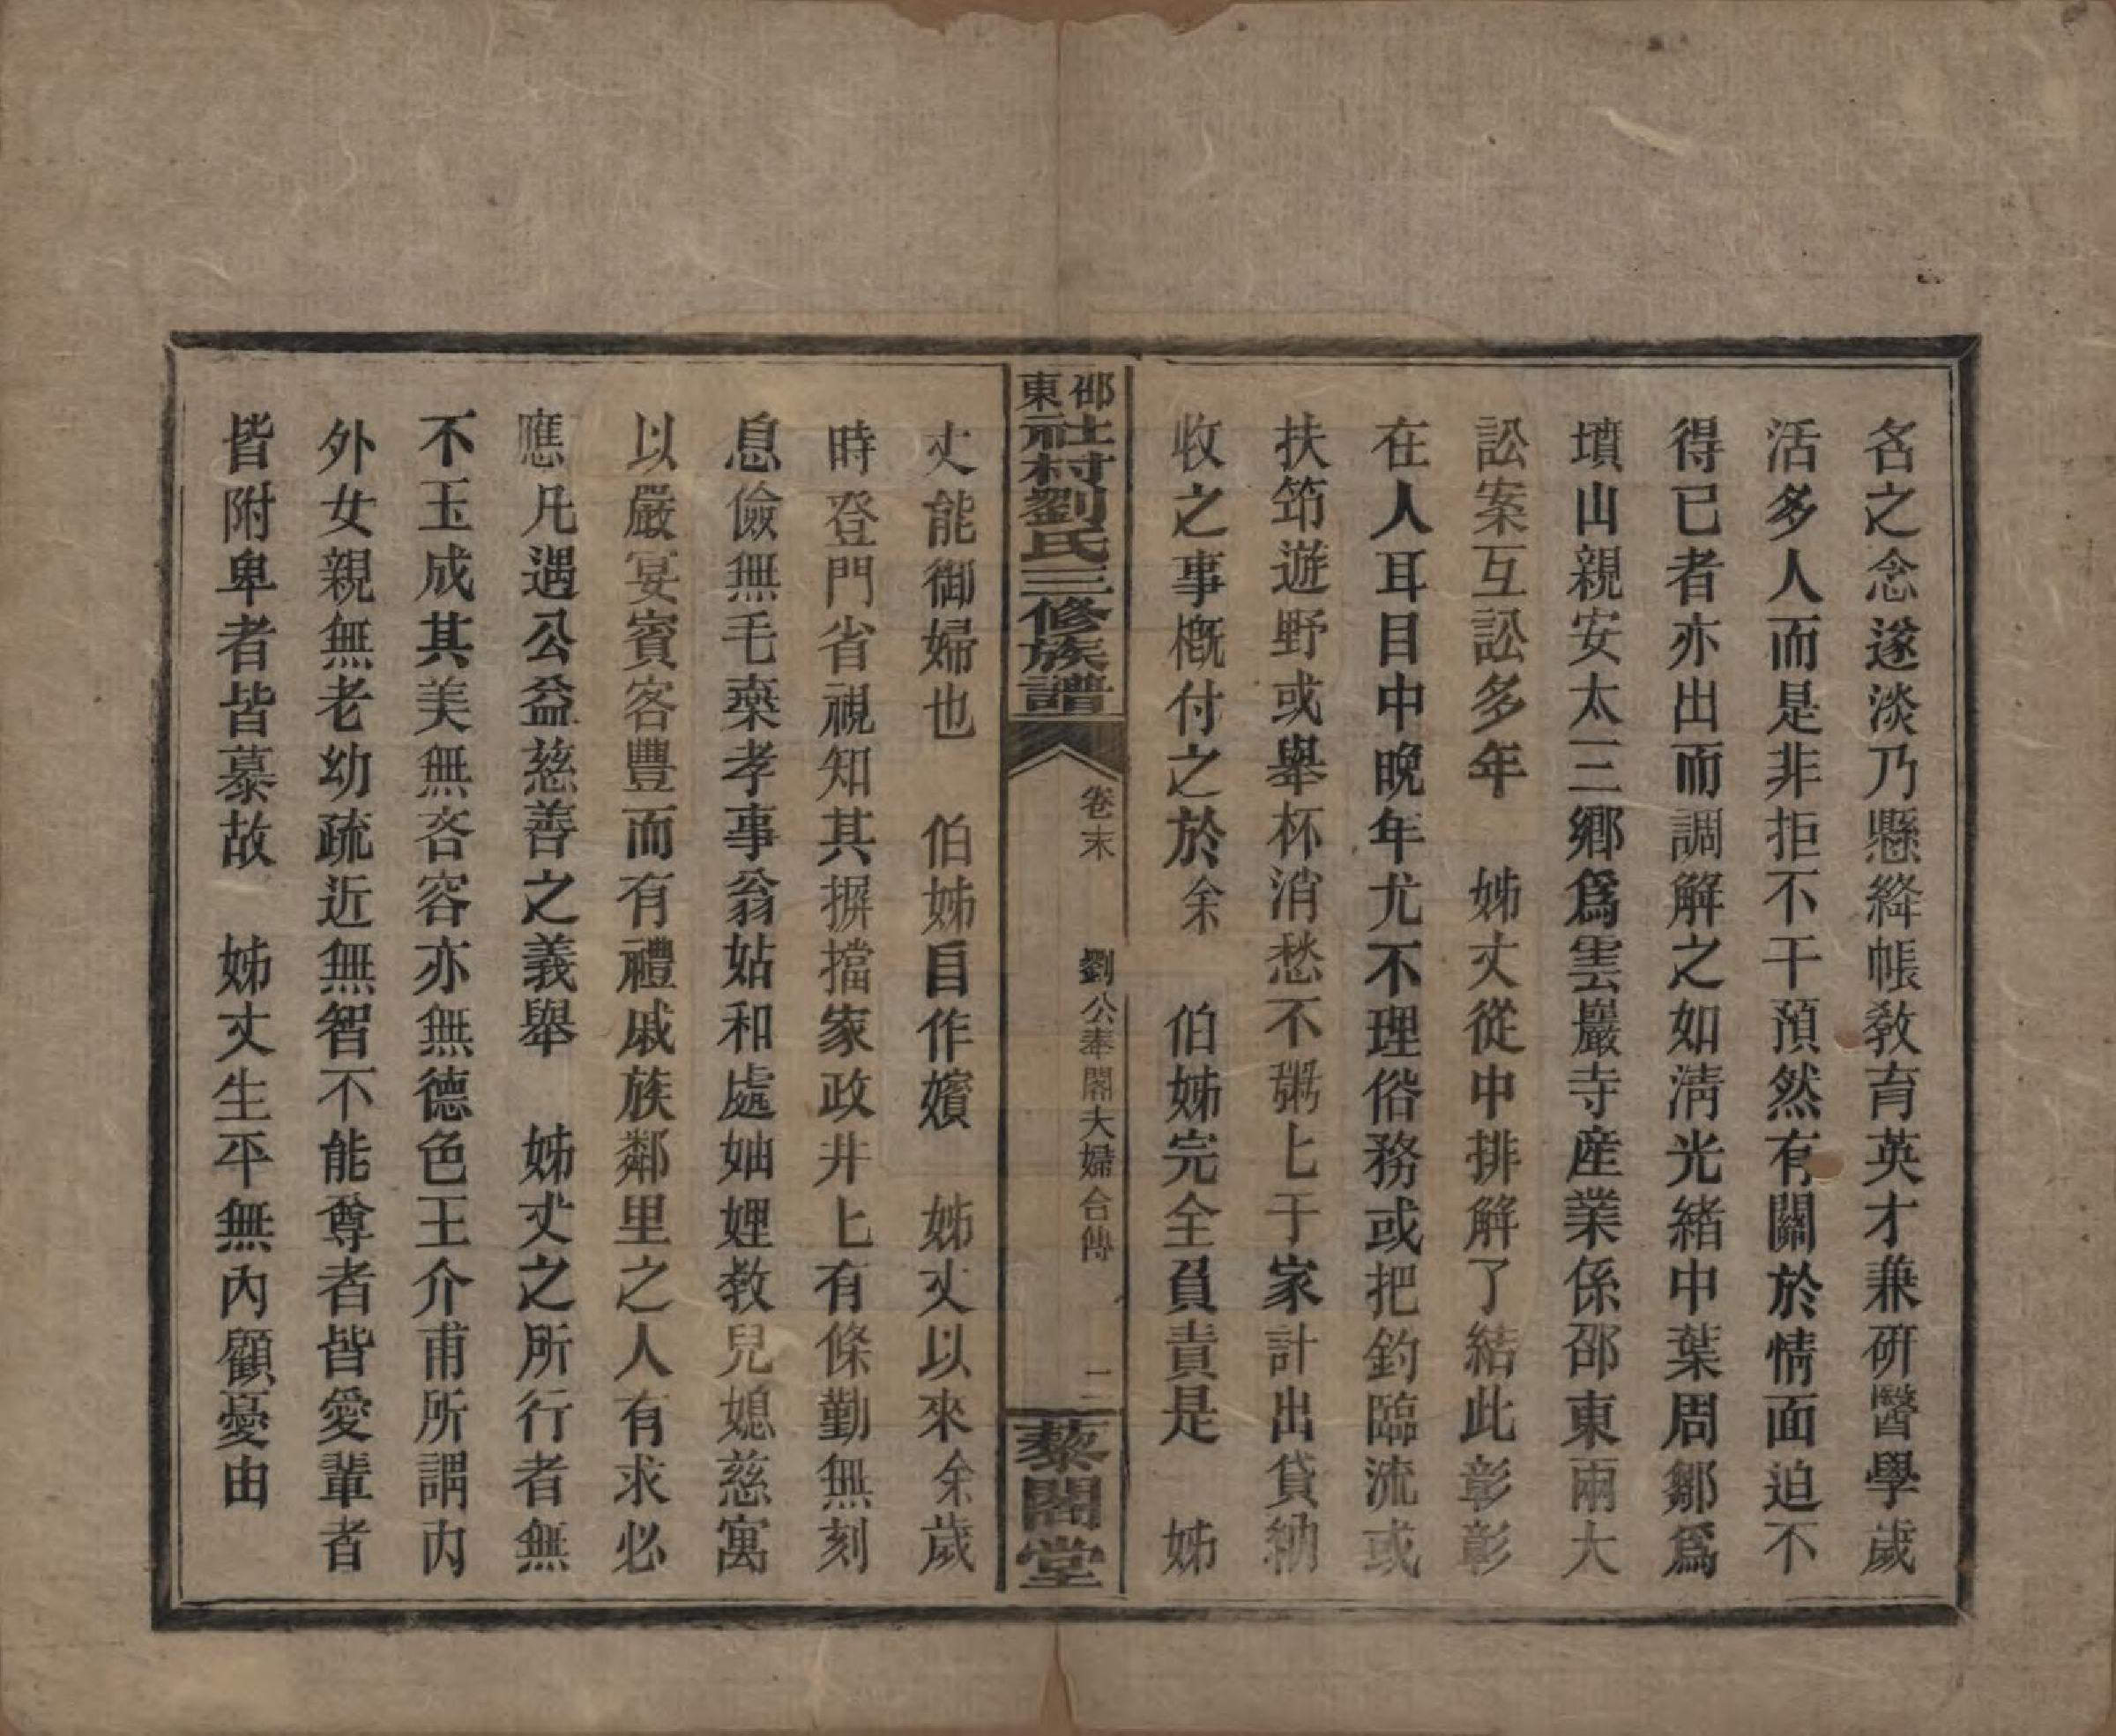 名之念遂淡乃懸絳帳教育英才兼硏醫學歲
活多人而是非拒不干預然有關於情面迫不
得已者亦出而調解之如淸光緖中葉周鄒爲
墳山親安太三鄉爲雲巖寺産業係邵東兩大
訟案互訟多年　姊丈從中排解了結此彰彰
在人耳目中晩年尤不理俗務或把釣臨流或
扶筇遊野或舉杯消愁不粥上于家計出貸納
收之事槪付之於余　伯姊完全負責是　姊
邵東社村劉氏三修族譜
卷末　劉公奉閣大婦合傳　二
藜閣堂
丈能御婦也　伯姊自作嬪　姊丈以來余歲
時登門省視知其摒擋家政井上有條勤無刻
息儉無毛棄孝事翁姑和處妯娌教兒媳慈寓
以嚴宴賓客豐而有禮戚族鄰里之人有求必
應凡遇公益慈善之義舉　姊丈之所行者無
不玉成其美無吝容亦無德色王介甫所謂內
外女親無老幼疏近無智不能尊者皆愛輩者
皆附卑者皆慕故　姊丈生平無內顧憂由